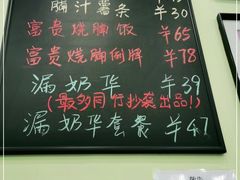 腩汁薯条 ¥30
富贵烧腩饭 ¥65
富贵烧腩
¥78
漏奶华 ¥39
(最多同行抄袭出品!)
漏奶华套餐 ¥47